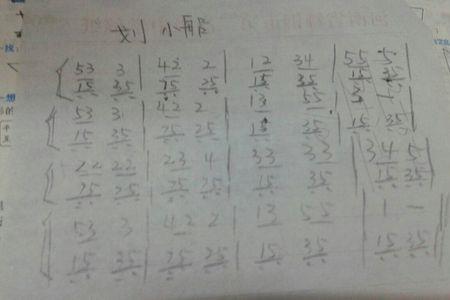 划小船
53 3 | 42 2 | 12 34 | 55 5
15 35 | 75 25 | 15 35 | 15 35
53 3 | 42 2 | 13 55 | 1 -
15 35 | 75 25 | 15 35 | 15 35
22 22 | 23 4 | 33 33 | 34 5
75 25 | 75 25 | 15 35 | 15 35
53 3 | 42 2 | 13 55 | 1 -
15 35 | 75 25 | 15 35 | 15 35